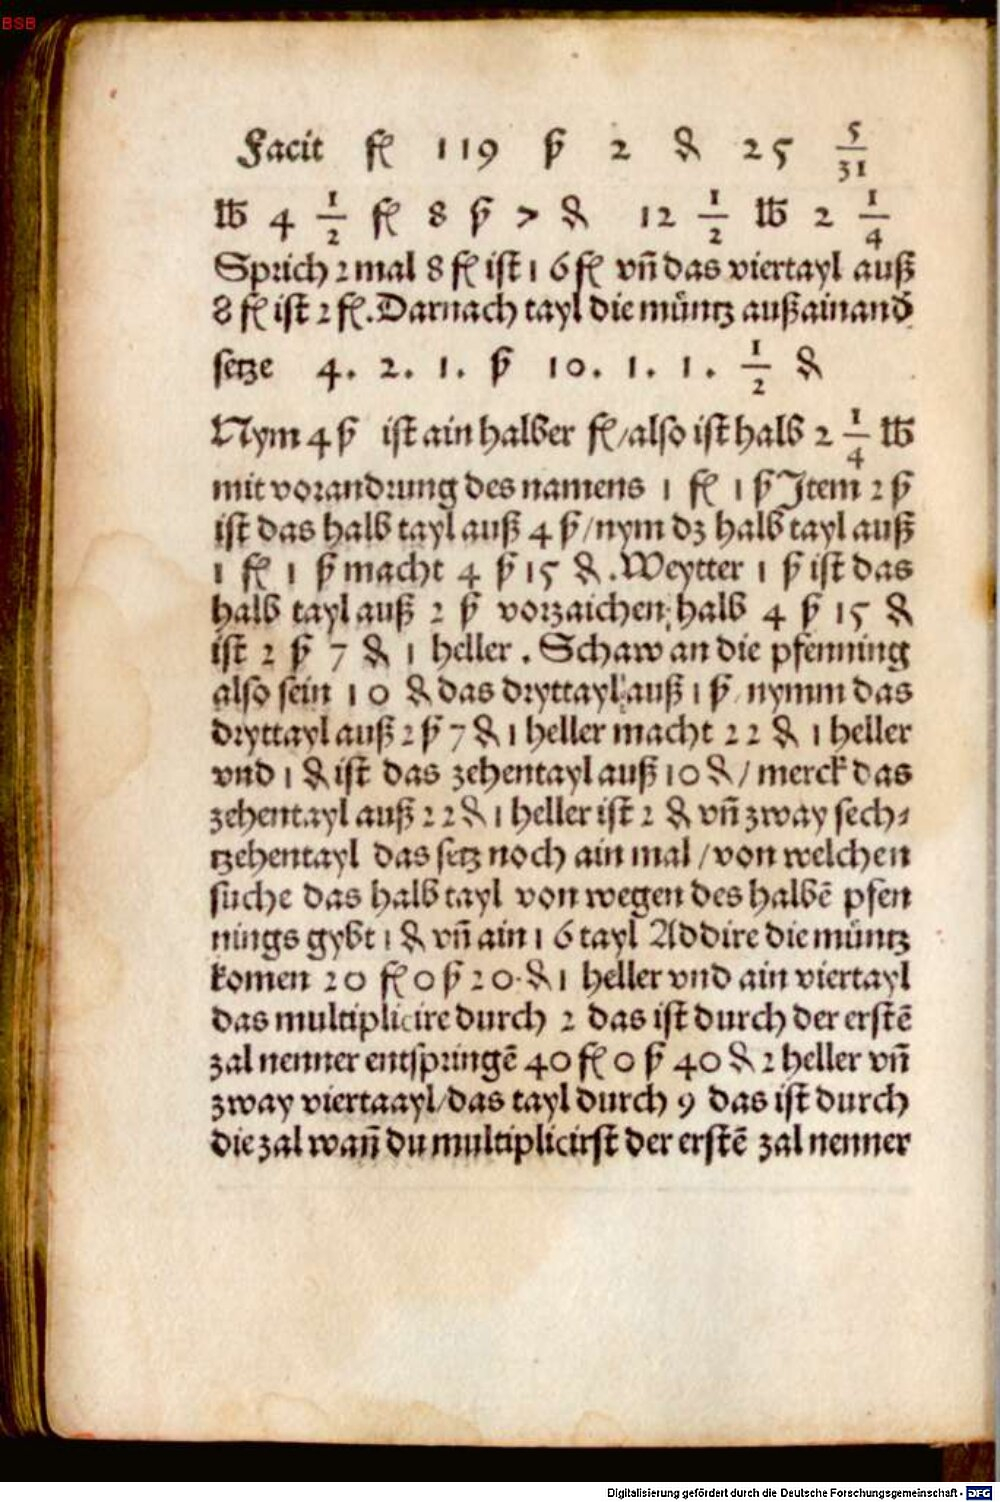 BSB
Facit fl 119 ß 2 ₰ 25 5/31
℔ 4 1/2 fl 8 ß > ₰ 12 1/2 ℔ 2 1/4
Sprich 2 mal 8 fl ist 1 6 fl vn̄ das viertayl auß
8 fl ist 2 fl. Darnach tayl die müntz außainand̕
setze 4. 2. 1. ß 10. 1. 1. 1/2 ₰
Nym 4 ß ist ain halber fl/also ist halb 2 1/4 ℔
mit vorandrung des namens 1 fl 1 ß Jtem 2 ß
ist das halb tayl auß 4 ß/nym dz halb tayl auß
1 fl 1 ß macht 4 ß 15 ₰. Weytter 1 ß ist das
halb tayl auß 2 ß vorzaichen; halb 4 ß 15 ₰
ist 2 ß 7 ₰ 1 heller. Schaw an die pfenning
also sein 10 ₰ das dryttayl auß 1 ß/nymm das
dryttayl auß 2 ß 7 ₰ 1 heller macht 22 ₰ 1 heller
vnd 1 ₰ ist das zehentayl auß 10 ₰/merck das
zehentayl auß 22 ₰ 1 heller ist 2 ₰ vn̄ zway sech⸗
tzehentayl das setz noch ain mal/von welchen
suche das halb tayl von wegen des halbē pfen
nings gybt 1 ₰ vn̄ ain 1 6 tayl Addire die müntz
komen 20 fl 0 ß 20. ₰ 1 heller vnd ain viertayl
das multiplicire durch 2 das ist durch der erstē
zal nenner entspringē 40 fl 0 ß 40 ₰ 2 heller vn̄
zway viertaayl/das tayl durch 9 das ist durch
die zal wan̄ du multiplicirst der erstē zal nenner
Digitalisierung gefördert durch die Deutsche Forschungsgemeinschaft - DFG